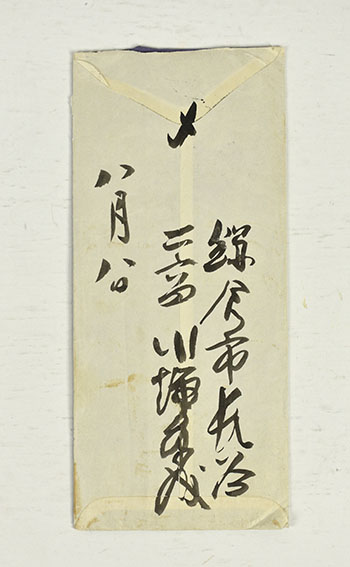 鎌倉市長谷
二六四 川端康成
〆
八月八日